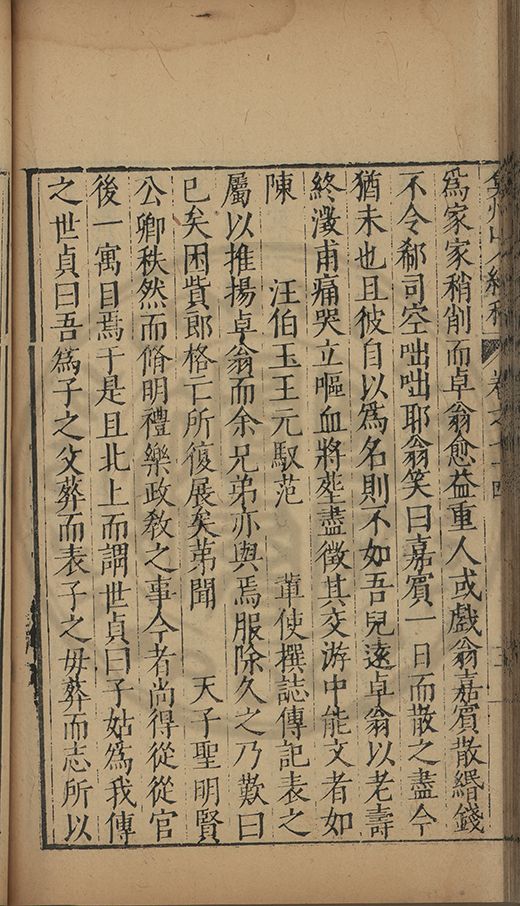 為家家稍削而卓翁愈益重人或戲翁嘉賓散緡錢
不令郗司空咄咄耶翁笑曰嘉賓一日而散之盡今
猶未也且彼自以為名則不如吾兒遠卓翁以老壽
終澂甫痛哭立嘔血將塟盡徵其交游中能文者如
陳　　汪伯玉王元馭范　　軰使撰誌傳記表之
屬以推揚卓翁而余兄弟亦與焉服除久之乃歎曰
已矣困貲郎格亡所復展矣苐聞　　天子聖明賢
公卿秩然而脩明禮樂政教之事今者尚得從從官
後一寓目焉于是且北上而謂世貞曰子姑為我傳
之世貞曰吾為子之父葬而表子之毋葬而志所以